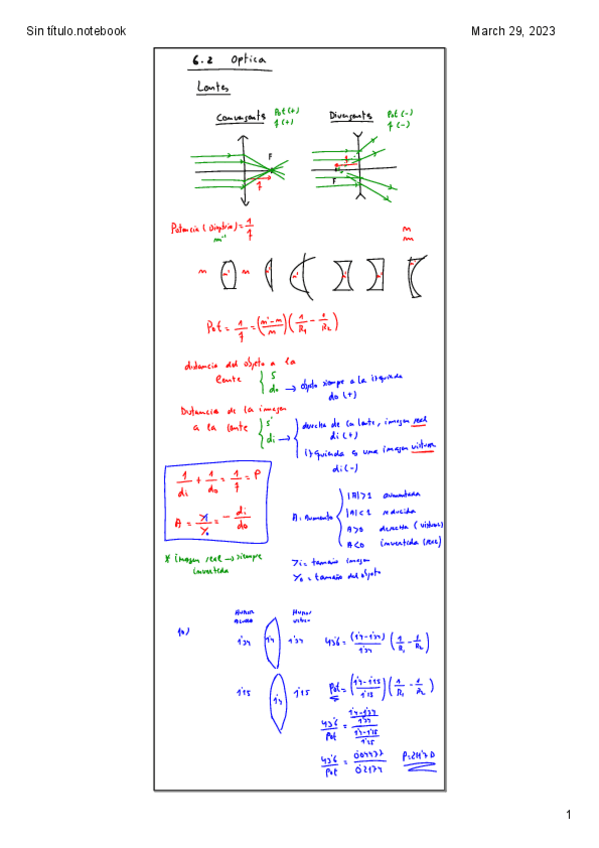 Sin título.notebook
March 29, 2023
6.2 Optica
Lentes
Convergente Pot (+)
f (+)
Divergente Pot (-)
f (-)
F
f
F
f
Potencia (Dioptría) = 1/f
m⁻¹
n
n
n n' n n' n' n' n'
Pot = 1/f = (n'-n / n) (1/R₁ - 1/R₂)
distancia del objeto a la
lente { s
do → objeto siempre a la izquierda
do (+)
Distancia de la imagen
a la lente { s'
di → { derecha de la lente, imagen real
di (+)
izquierda es una imagen virtual
di (-)
1/di + 1/do = 1/f = P
A = Yi/Yo = - di/do
A: Aumento { |A| > 1 aumentada
|A| < 1 reducida
A > 0 derecha (virtual)
A < 0 invertida (real)
* imagen real → siempre
invertida
Yi = tamaño imagen
Yo = tamaño del objeto
Humor
Humor
vitreo
1'34 1'34
1'15 1'4 1'15
Pot = (1'4-1'15 / 1'15) (1/R₁ - 1/R₂)
1